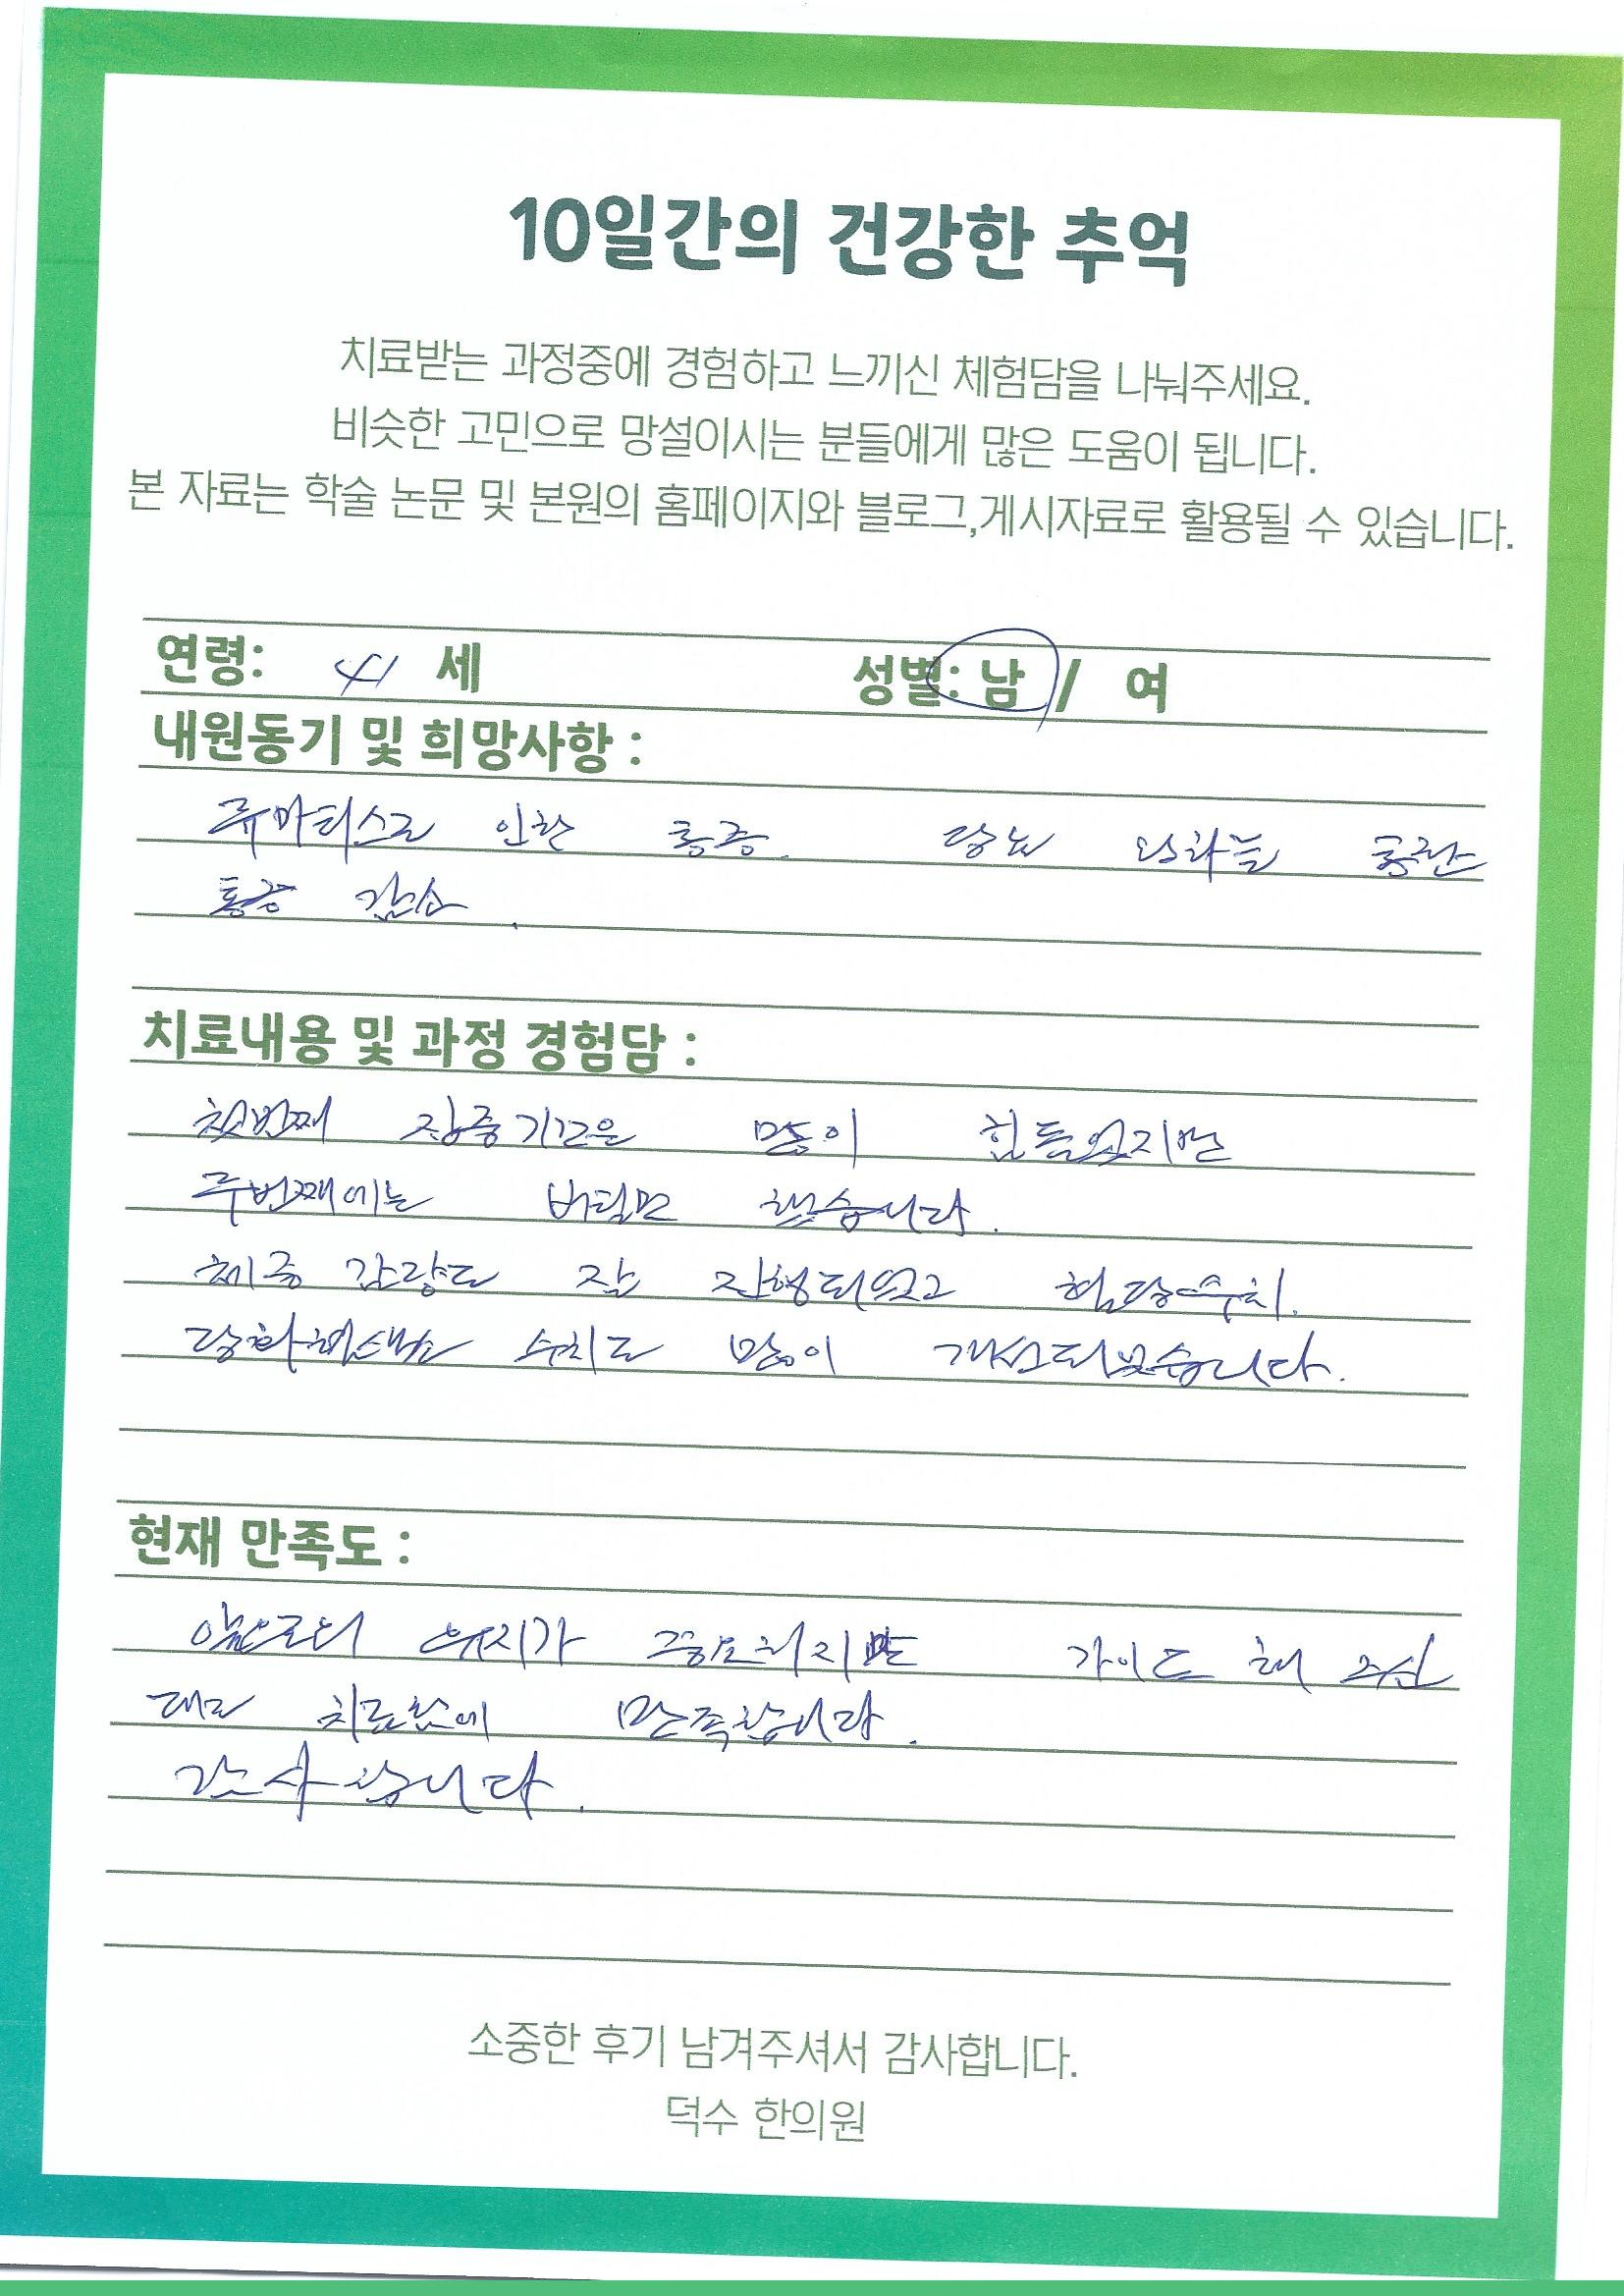 10일간의 건강한 추억
치료받는 과정중에 경험하고 느끼신 체험담을 나눠주세요.
비슷한 고민으로 망설이시는 분들에게 많은 도움이 됩니다.
본 자료는 학술 논문 및 본원의 홈페이지와 블로그,게시자료로 활용될 수 있습니다.
연령: 41 세 성별: 남 / 여
내원동기 및 희망사항 :
류마티스로 인한 통증. 당뇨
통증 감소.
치료내용 및 과정 경험담 :
첫번째 집중기간은 많이 힘들었지만
두번째에는 버틸만 했습니다.
체중 감량도 잘 진행되었고 혈당수치.
당화혈색소 수치도 많이 개선되었습니다.
현재 만족도 :
앞으로의 유지가 중요하지만 가이드 해 주신
대로 치료함에 만족합니다.
감사합니다.
소중한 후기 남겨주셔서 감사합니다.
덕수 한의원